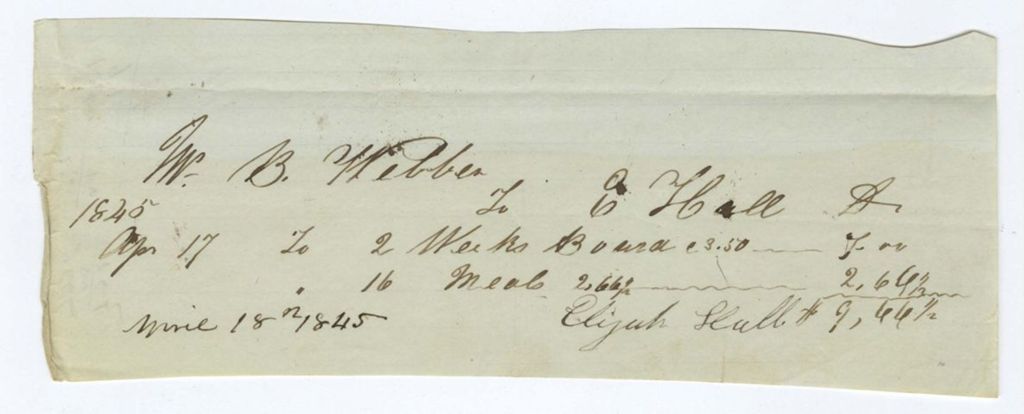 Mr. B. Webber
1845 To E Hall Dr
Apr 17 To 2 Weeks Board @ 3.50 7.00
" 16 Meals 2,66½ 2,66½
April 18th 1845 Elijah Hall $ 9,66½